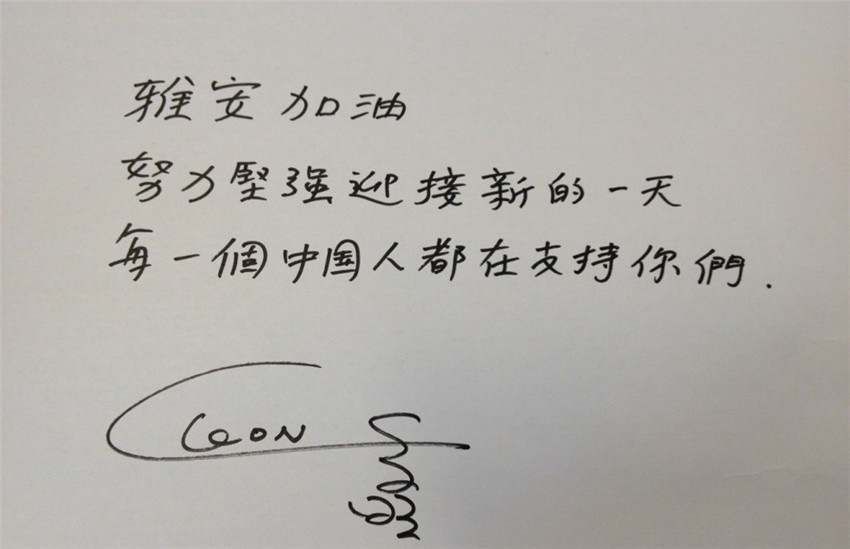 雅安加油
努力堅强迎接新的一天
每一個中国人都在支持你們.
Leon